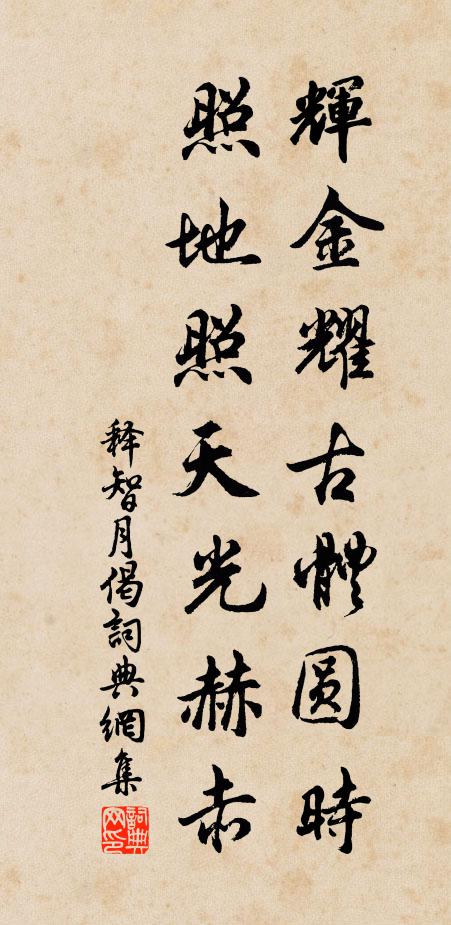 輝金耀古體圓時
照地照天光赫赤
释智月偈詞典網集
詞典网印